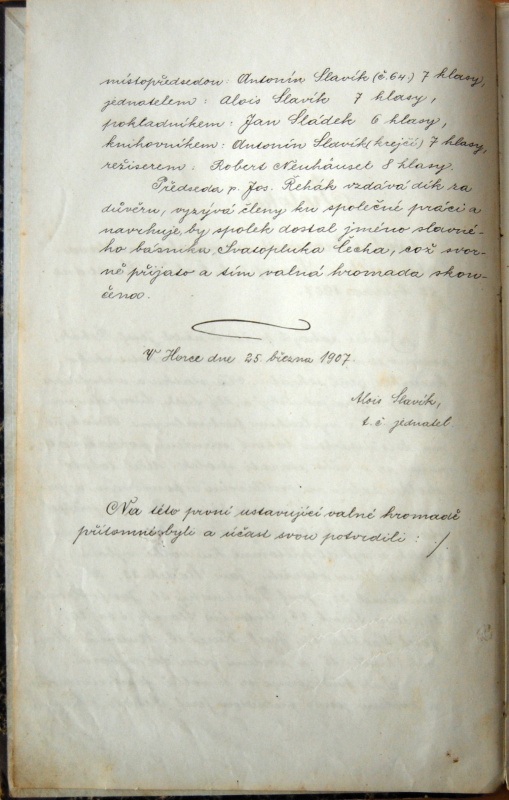 místopředsedou: Antonín Slavík (č. 64.) 7 hlasy,
jednatelem: Alois Slavík 7 hlasy,
pokladníkem: Jan Sládek 6 hlasy,
knihovníkem: Antonín Slavík (krejčí) 7 hlasy,
režiserem: Robert Neuhäusel 8 hlasy.
Předseda p. Jos. Řehák vzdává dík za
důvěru, vyzývá členy ku společné práci a
navrhuje, by spolek dostal jméno slavné-
ho básníka, Svatopluka Čecha, což svor-
ně přijato a tím valná hromada skon-
čena.
V Horce dne 25. března 1907.
Alois Slavík,
t. č. jednatel.
Na této první ustavující valné hromadě
přítomni byli a účast svou potvrdili: ./.